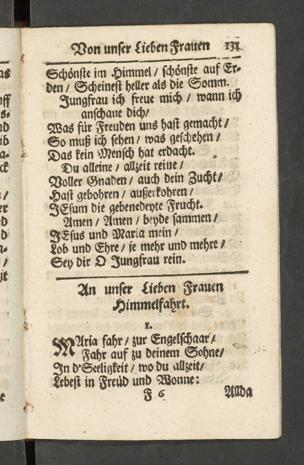 Von unser Lieben Frauen 131
Schönste im Himmel / schönste auf Er-
den / Scheinest heller als die Sonn.
Jungfrau ich freue mich / wann ich
anschaue dich /
Was für Freuden uns hast gemacht /
So muß ich sehen / was geschehen /
Das kein Mensch hat erdacht.
Du alleine / allzeit reine /
Voller Gnaden / auch dein Zucht /
Hast gebohren / außerkohren /
JEsum die gebenedeyte Frucht.
Amen / Amen / beyde sammen /
JEsus und Maria mein /
Lob und Ehre / je mehr und mehre /
Sey dir O Jungfrau rein.
An unser Lieben Frauen
Himmelfahrt.
1.
MAria fahr / zur Engelschaar /
Fahr auf zu deinem Sohne /
In d'Seeligkeit / wo du allzeit /
Lebest in Freüd und Wonne:
F 6 Allda